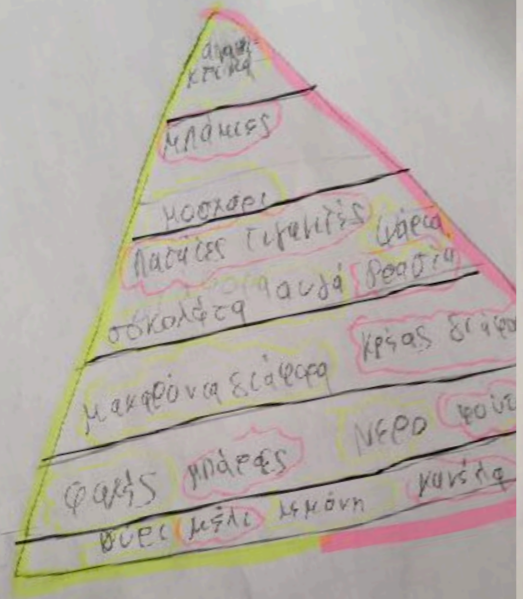 αναψυ-
κτικά
μπάμιες
μοσχάρι
πατάτες τιγανιτές ψάρια
σοκολάτα αυγά βραστά
μακαρόνια διάφορα κρέας διάφο
φακές μπάρες νερό φρούτ
τύρι μέλι λεμόνη κανέλα